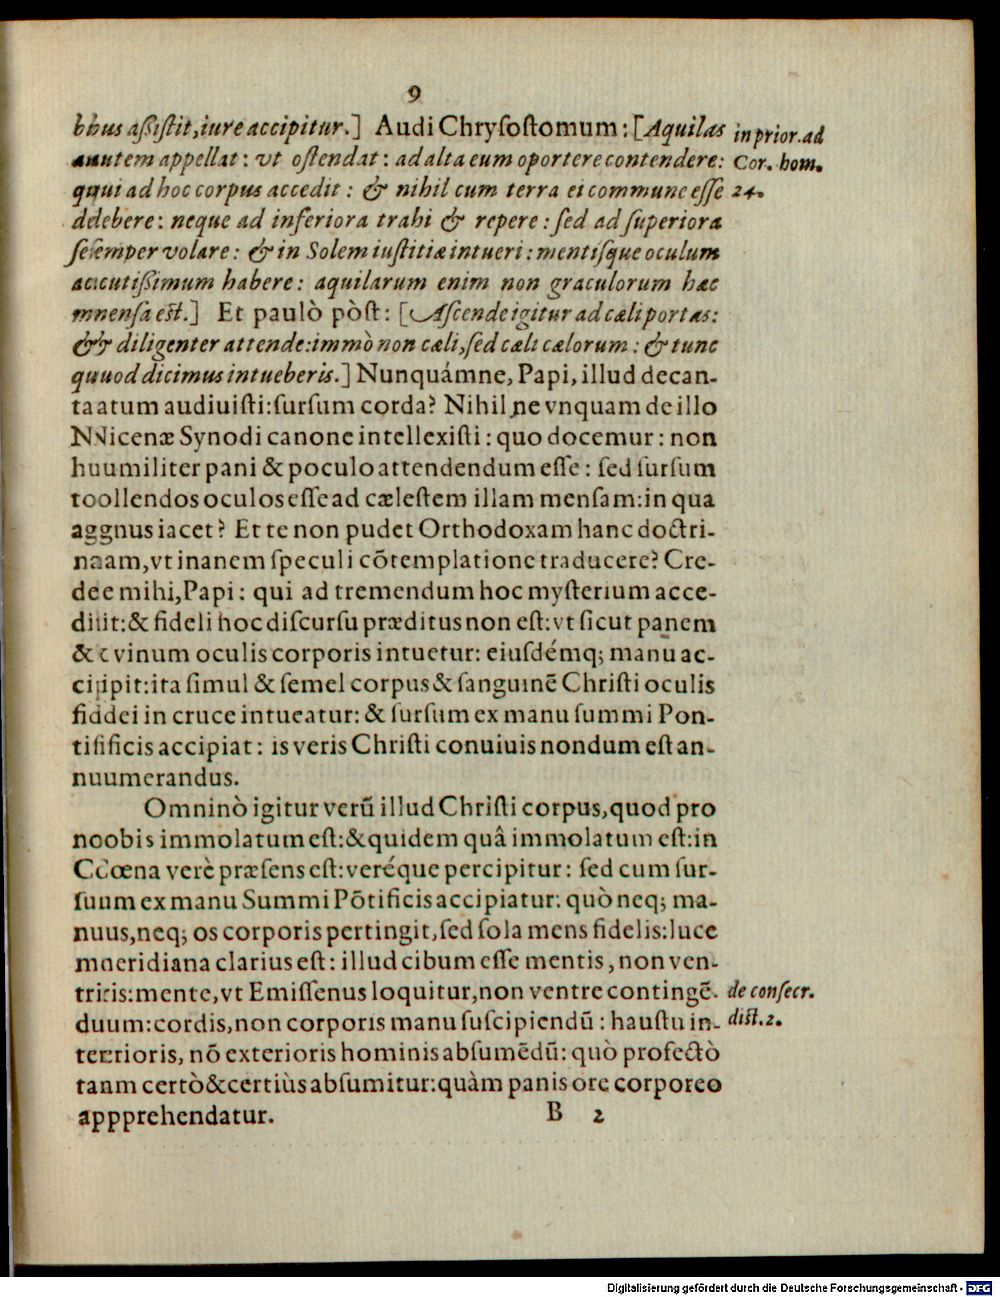 9
bbus aſsiſtit, iure accipitur.] Audi Chryſoſtomum: [Aquilas
auutem appellat: vt oſtendat: ad alta eum oportere contendere:
quui ad hoc corpus accedit: & nihil cum terra ei commune eſſe
debebere: neque ad inferiora trahi & repere: ſed ad ſuperiora
ſeſemper volare: & in Solem iuſtitiæ intueri: mentiſque oculum
acacutiſsimum habere: aquilarum enim non graculorum hæc
mnenſa eſt.] Et paulò pòſt: [Aſcende igitur ad cæli portas:
&& diligenter attende: immò non cæli, ſed cæli cælorum: & tunc
quuod dicimus intueberis.] Nunquámne, Papi, illud decan-
taatum audiuiſti: ſurſum corda? Nihilne vnquam de illo
NNicenæ Synodi canone intellexiſti: quo docemur: non
huumiliter pani & poculo attendendum eſſe: ſed ſurſum
toollendos oculos eſſe ad cæleſtem illam menſam: in qua
aggnus iacet? Et te non pudet Orthodoxam hanc doctri-
naam, vt inanem ſpeculi cõtemplatione traducere? Cre-
dee mihi, Papi: qui ad tremendum hoc myſterium acce-
diit: & fideli hoc diſcurſu præditus non eſt: vt ſicut panem
& vinum oculis corporis intuetur: eiuſdémq; manu ac-
ciipit: ita ſimul & ſemel corpus & ſanguinē Chriſti oculis
fiidei in cruce intueatur: & ſurſum ex manu ſummi Pon-
tififficis accipiat: is veris Chriſti conuiuis nondum eſt an-
nuumerandus.
Omninò igitur verũ illud Chriſti corpus, quod pro
noobis immolatum eſt: & quidem quâ immolatum eſt: in
CCœna verè præſens eſt: veréque percipitur: ſed cum ſur-
ſuum ex manu Summi Põtificis accipiatur: quò neq; ma-
nuus, neq; os corporis pertingit, ſed ſola mens fidelis: luce
mneridiana clarius eſt: illud cibum eſſe mentis, non ven-
triris: mente, vt Emiſſenus loquitur, non ventre contingē-
duum: cordis, non corporis manu ſuſcipiendũ: hauſtu in-
terrioris, nõ exterioris hominis abſumēdũ: quò profectò
tanm certò & certiùs abſumitur: quàm panis ore corporeo
appprehendatur.
B 2
in prior. ad
Cor. hom.
24.
de conſecr.
diſt. 2.
Digitalisierung gefördert durch die Deutsche Forschungsgemeinschaft - DFG